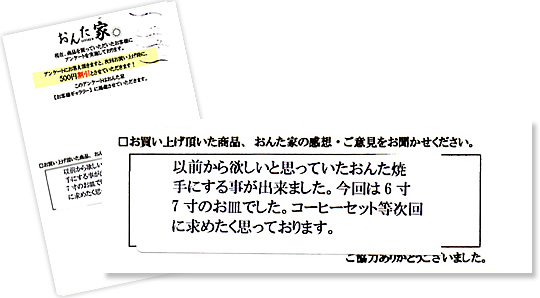 おんた家
現在、商品を買っていただいたお客様に
アンケートを実施しております。
アンケートにお答え頂きますと、次回お買い上げ時に、
500円割引とさせていただきます!
このアンケートはおんた家
【お客様ギャラリー】に掲載させていただきます。
□お買い上げ頂いた商品、おんた
以前から欲しい
手にする事が
7寸のお皿で
に求めたく思
□お買い上げ頂いた商品、おんた家の感想・ご意見をお聞かせください。
以前から欲しいと思っていたおんた焼
手にする事が出来ました。今回は6寸
7寸のお皿でした。コーヒーセット等次回
に求めたく思っております。
ご協力ありがとうございました。